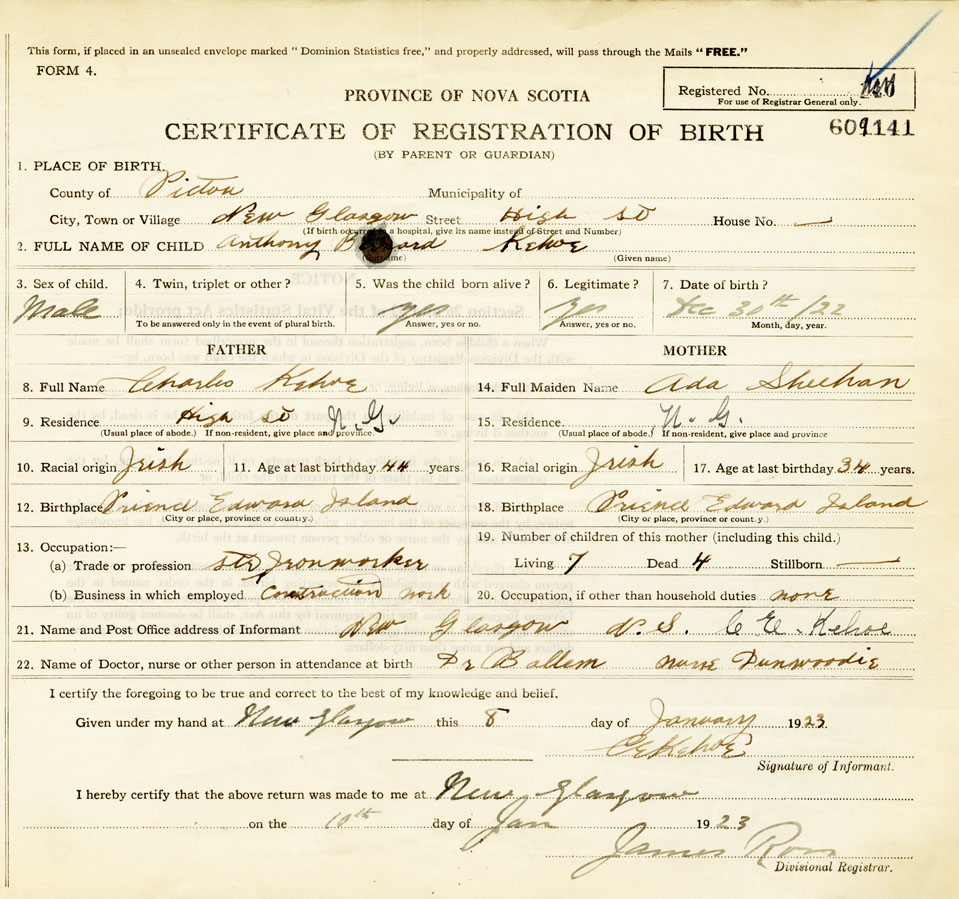 This form, if placed in an unsealed envelope marked “ Dominion Statistics free,” and properly addressed, will pass through the Mails “ FREE.”
FORM 4.
Registered No.
For use of Registrar General only.
PROVINCE OF NOVA SCOTIA
CERTIFICATE OF REGISTRATION OF BIRTH
(BY PARENT OR GUARDIAN)
1. PLACE OF BIRTH.
County of Pictou Municipality of
City, Town or Village New Glasgow Street High St House No. —
(If birth occurred in a hospital, give its name instead of Street and Number)
2. FULL NAME OF CHILD Anthony Kehoe
(Surname) (Given name)
3. Sex of child. 4. Twin, triplet or other? 5. Was the child born alive? 6. Legitimate? 7. Date of birth?
Male yes yes Dec 30th /22
To be answered only in the event of plural birth. Answer, yes or no. Answer, yes or no. Month, day, year.
FATHER MOTHER
8. Full Name Charles Kehoe 14. Full Maiden Name Ada Sheehan
9. Residence High St N. G. 15. Residence. N. G.
(Usual place of abode.) If non-resident, give place and province. (Usual place of abode.) If non-resident, give place and province
10. Racial origin Irish 11. Age at last birthday 44 years. 16. Racial origin Irish 17. Age at last birthday 34 years.
12. Birthplace Prience Edward Island 18. Birthplace Prience Edward Island
(City or place, province or country.) (City or place, province or country.)
13. Occupation:— 19. Number of children of this mother (including this child.)
(a) Trade or profession Ironworker Living 7 Dead 4 Stillborn —
(b) Business in which employed Construction work 20. Occupation, if other than household duties none
21. Name and Post Office address of Informant New Glasgow N.S. C E. Kehoe
22. Name of Doctor, nurse or other person in attendance at birth Dr Ballem nurse Dunwoodie
I certify the foregoing to be true and correct to the best of my knowledge and belief.
Given under my hand at New Glasgow this 8 day of January 1923.
C E Kehoe
Signature of Informant.
I hereby certify that the above return was made to me at New Glasgow
on the 10th day of Jan 1923
James Ross
Divisional Registrar.